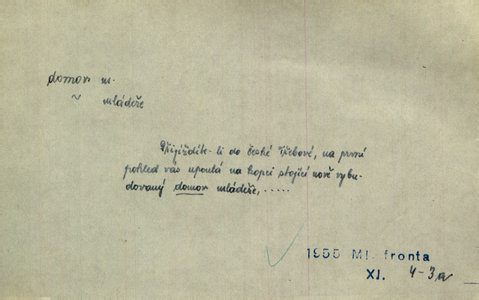 domov m.
~ mládeže
Přijíždíte-li do České Třebové, na první
pohled vás upoutá na kopci stojící nově vybu-
dovaný domov mládeže, .....
1955 Ml. fronta
XI. 4-3a